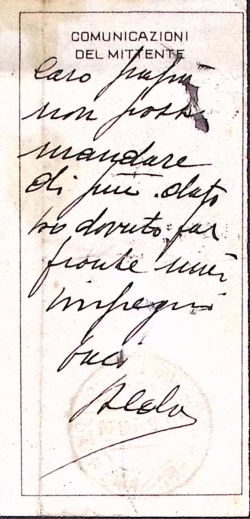 COMUNICAZIONI
DEL MITTENTE
Caro papà
non posso
mandare
di più. dato
ho dovuto far
fronte miei
impegni
baci
Aldo